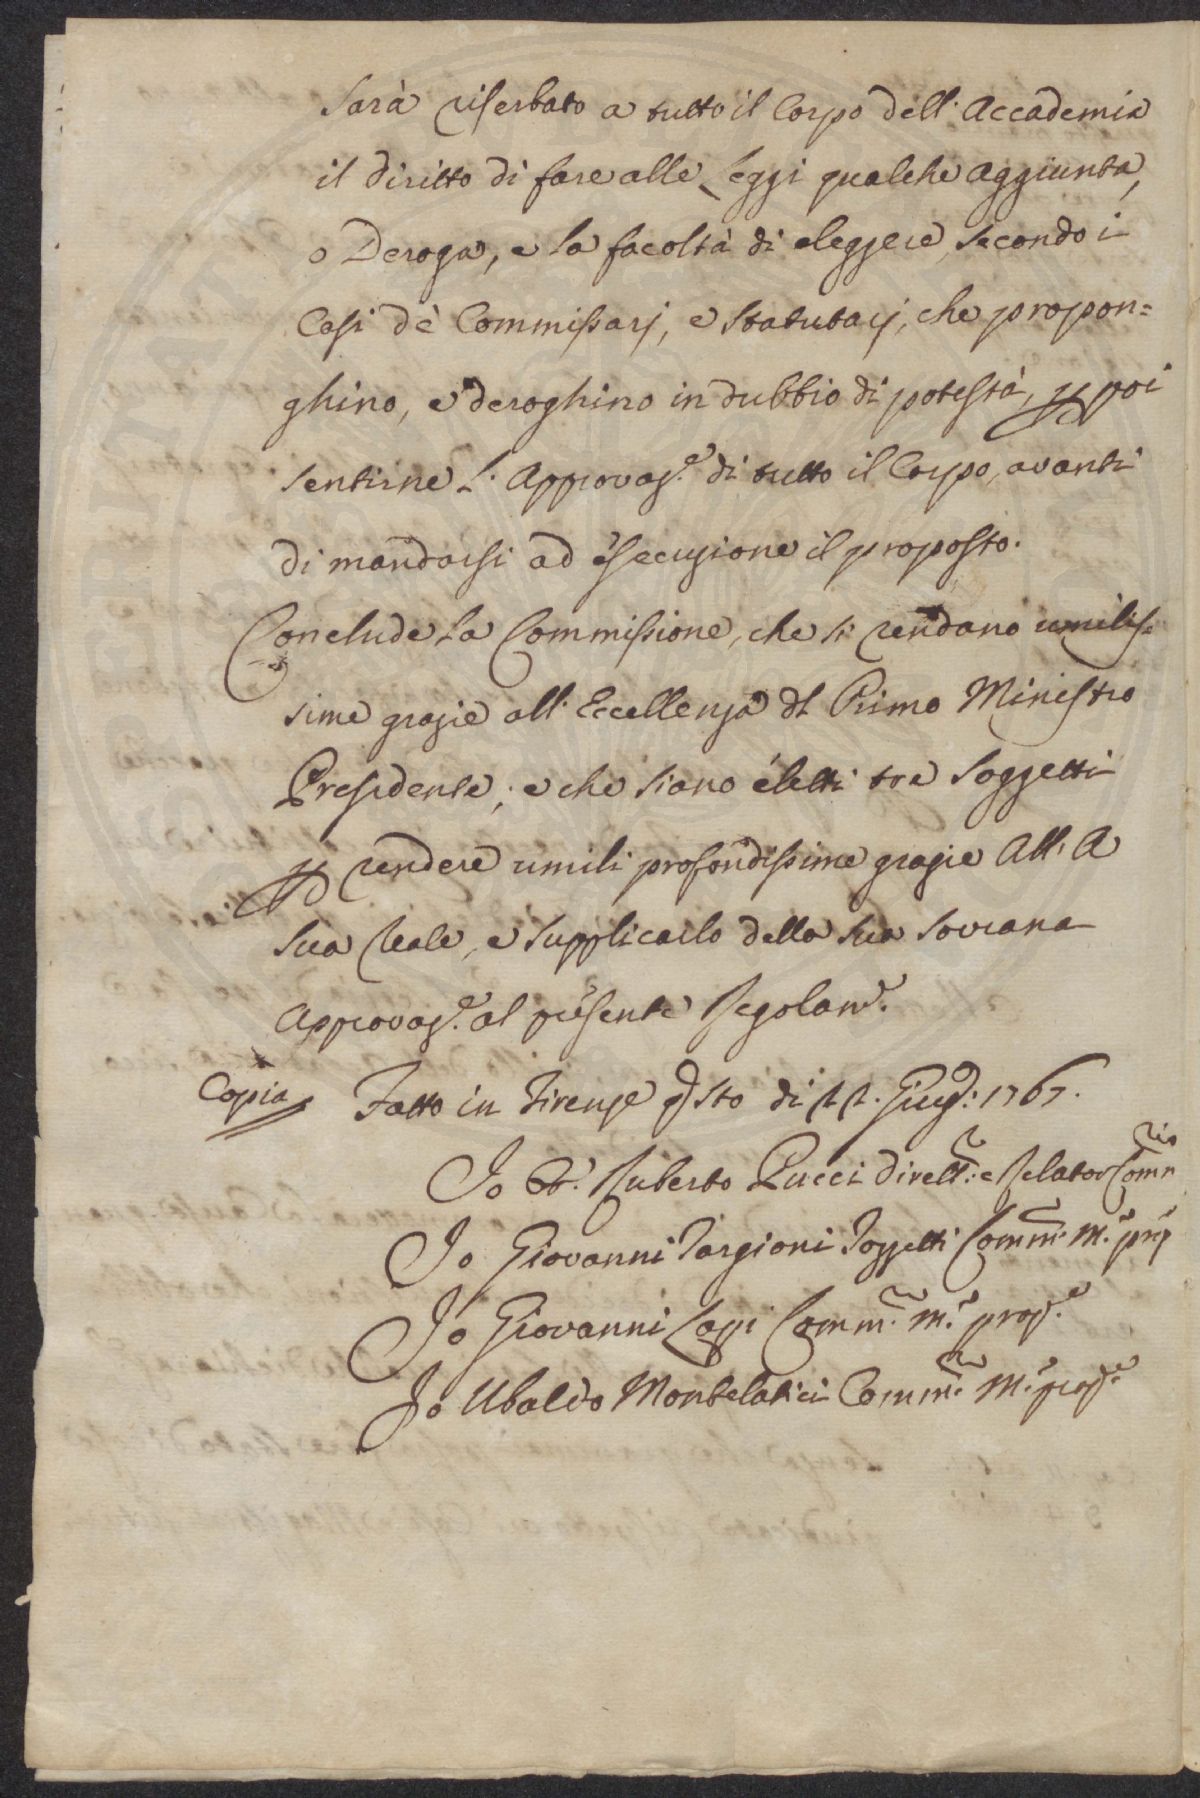 Sarà riserbato a tutto il Corpo dell' Accademia
il diritto di fare alle Leggi qualche aggiunta,
o Deroga, e la facoltà di eleggere secondo i
Casi dè Commissarj, e Statutarj, che propon=
ghino, e deroghino in dubbio di potestà, p poi
sentirne L' Approvaz.e di tutto il Corpo, avanti
di mandarsi ad esecuzione il proposto.
Conclude la Commissione, che si rendano umilis=
sime grazie all' Eccellenza dl Primo Ministro
Presidente; e che siano eletti tre Soggetti
p rendere umili profondissime grazie All' A
Sua Reale, e supplicarlo della sua sovrana
Approvaz.e al presente Regolam.
Copia Fatto in Firenze qsto di 22. Giug: 1767.
Io Ruberto Pucci Dirett.e e Relator Comm
Io Giovanni Targioni Tozzetti Comm. M.
Io Giovanni Lapi Comm. M.
Io Ubaldo Montelatici Comm. M.